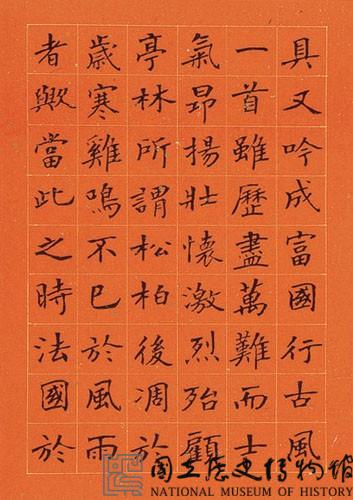 具又吟成富國行古風
一首雖歷盡萬難而士
氣昂揚壯懷激烈殆顧
亭林所謂松柏後凋於
歲寒雞鳴不已於風雨
者歟當此之時法國於
國立歷史博物館
NATIONAL MUSEUM OF HISTORY